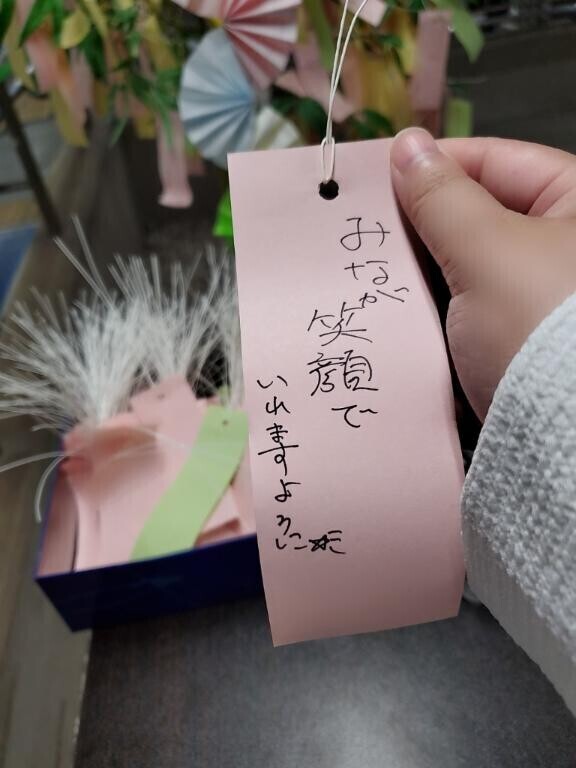 みなが笑顔で
いれますように